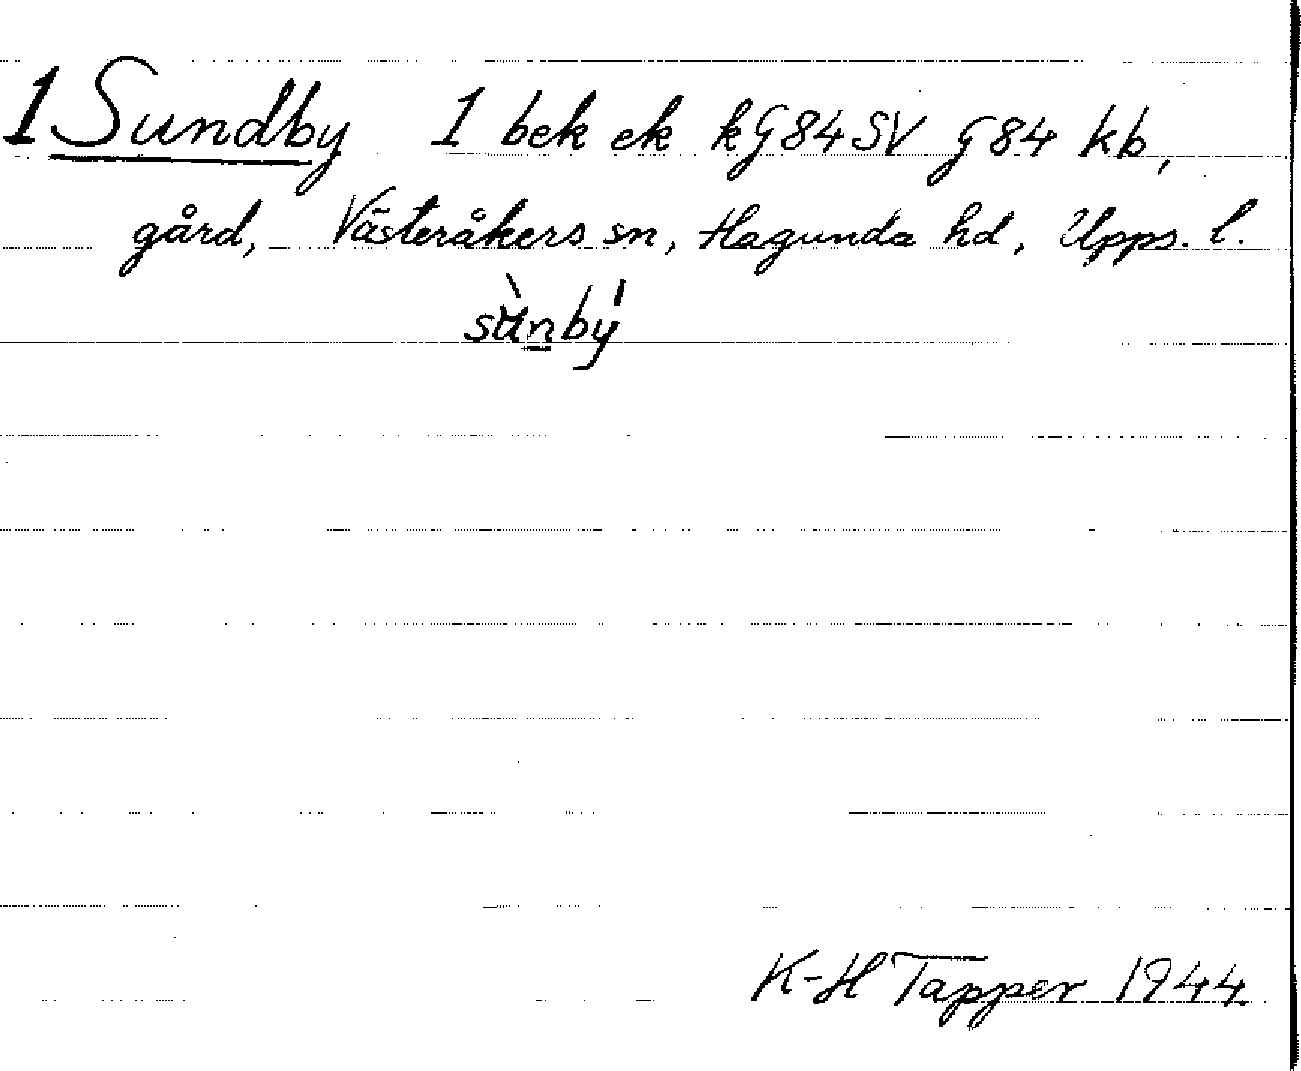 1 Sundby 1 bek ek kG84SV G84 kb,
gård, Västeråkers sn, Hagunda hd, Upps. l.
sùnbý
K-H Tapper 1944.